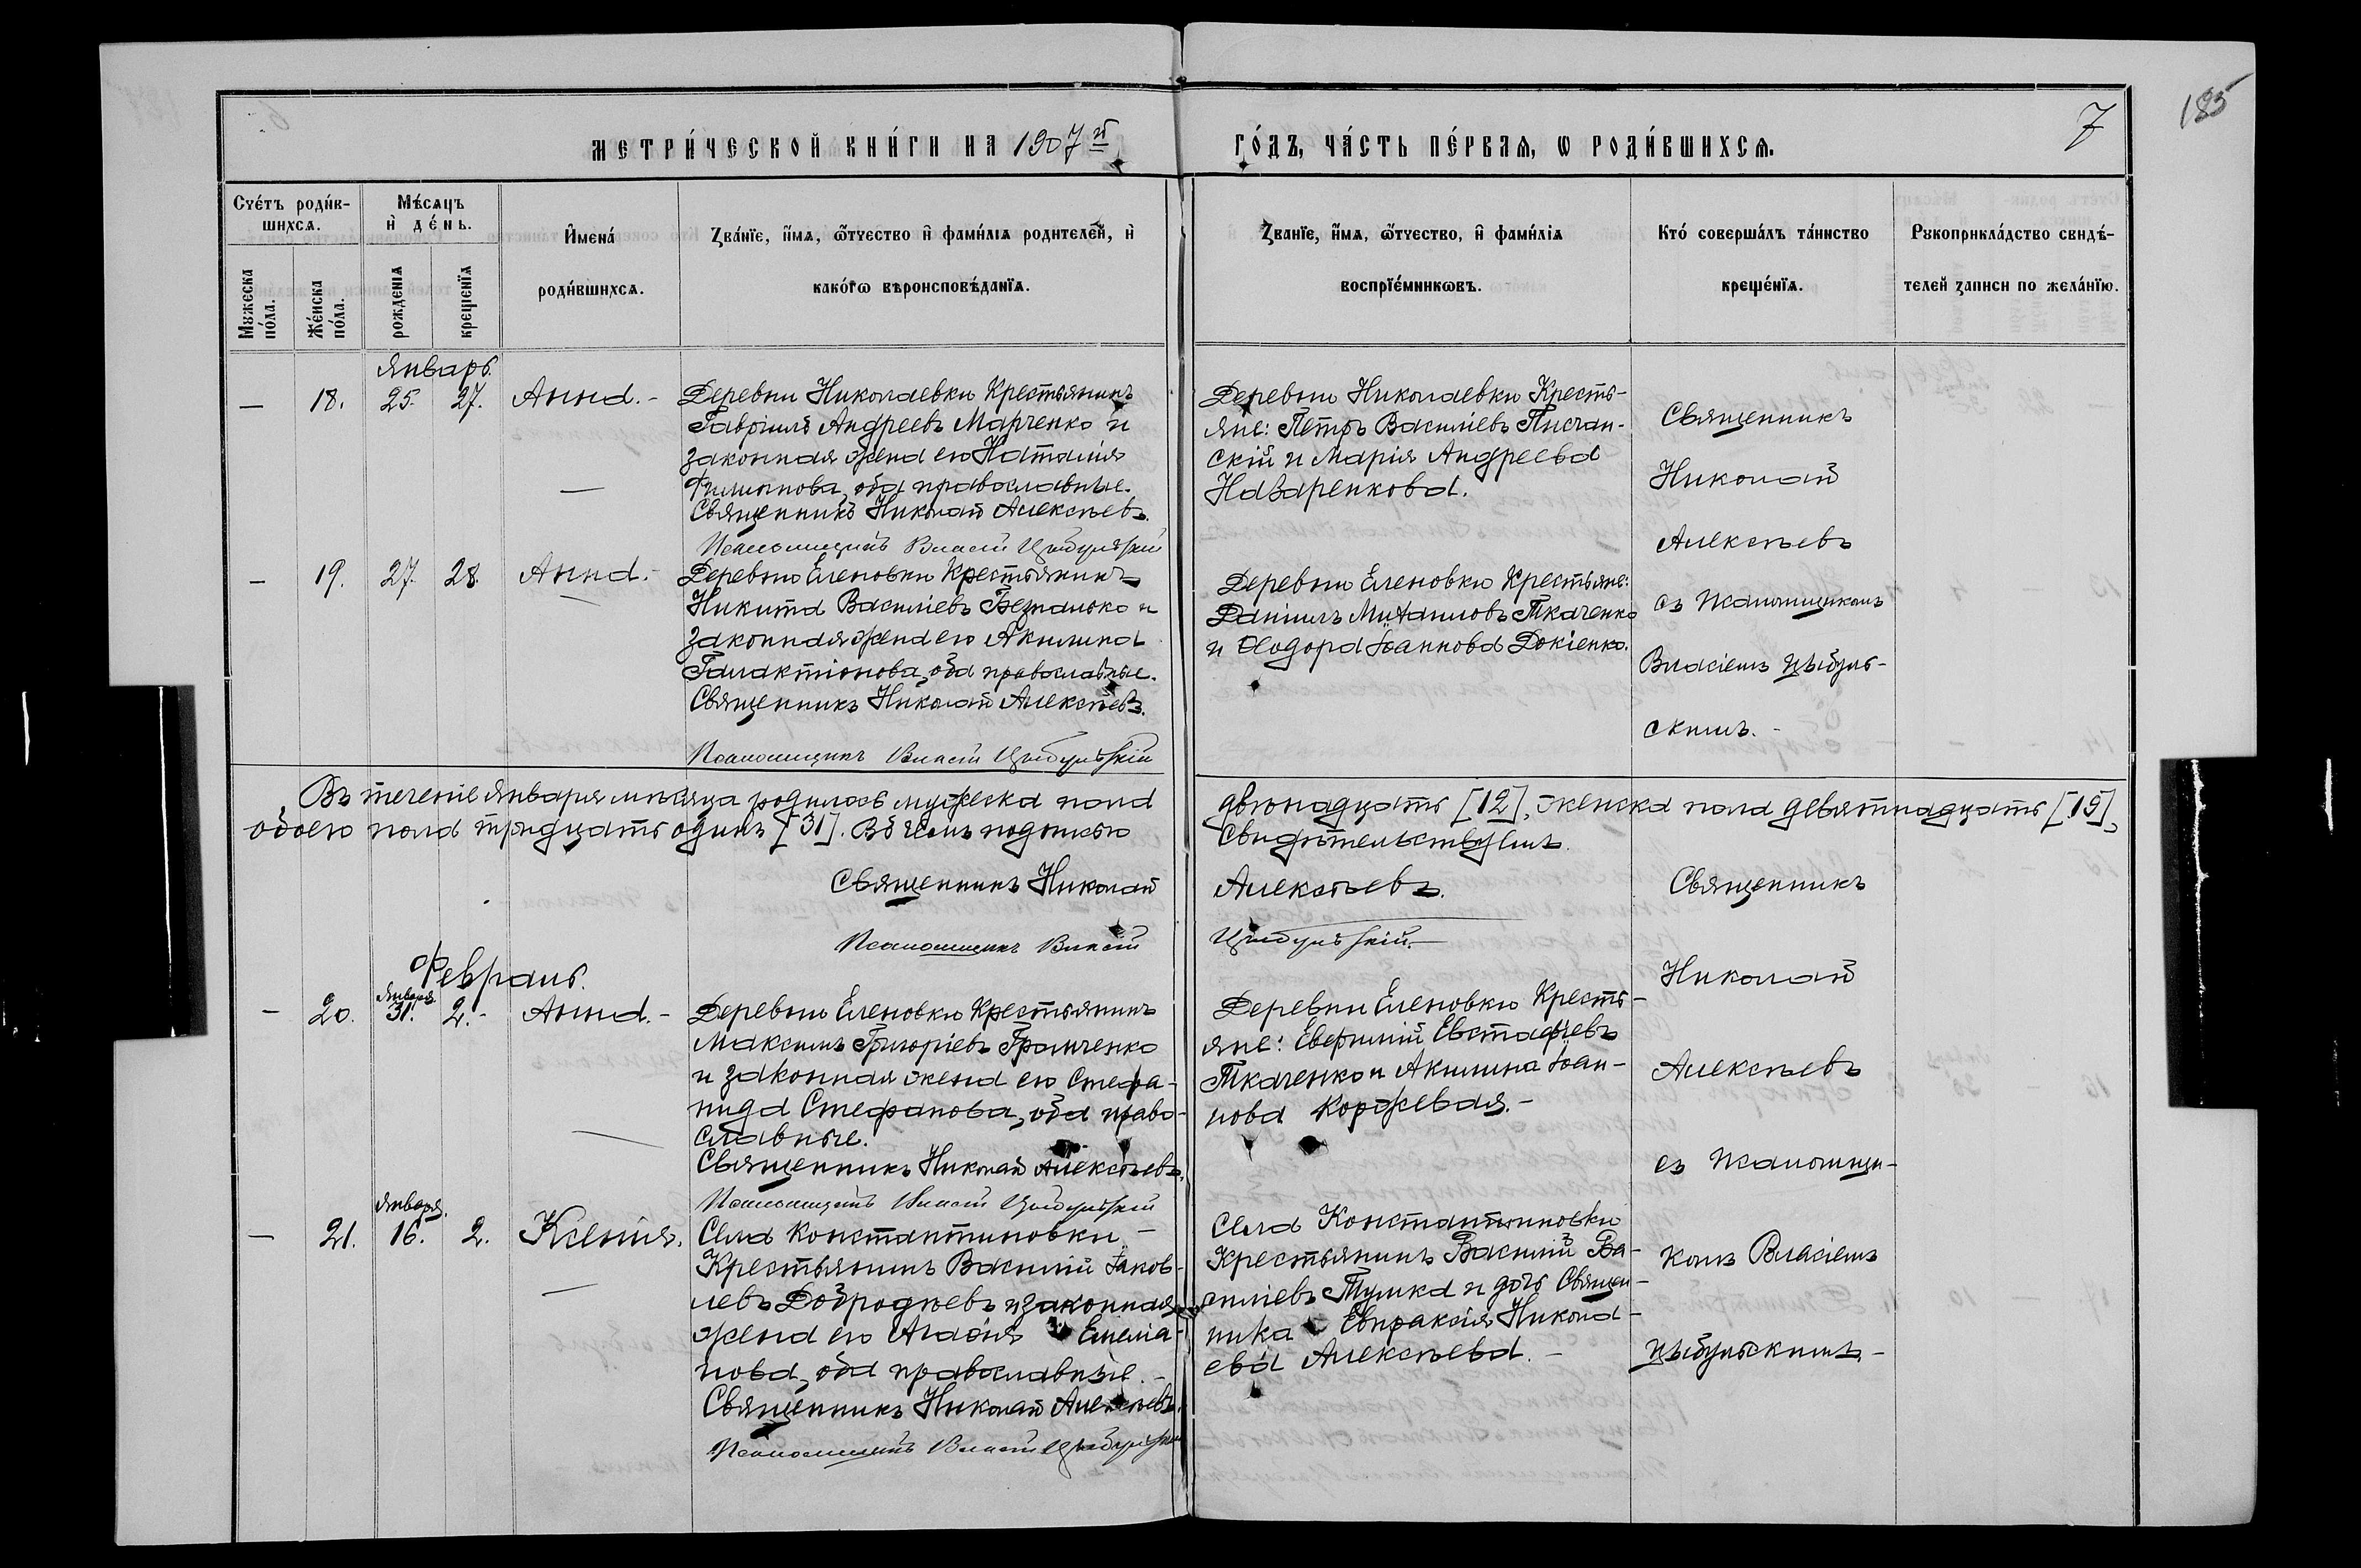 185
7
МЕТРИ́ЧЕСКОЙ КНИ́ГИ НА 1907й
ГО́ДЪ, ЧА́СТЬ ПЕ́РВАѦ, Ѡ РОДИ́ВШИХСѦ.
Счéтъ роди́в-
шихсѧ.
Мѣ́сѧцъ
и҆ дéнь.
И҆мена́
роди́вшихсѧ.
Зва́нїе, и҆́мѧ, ѻ҆́тчество и҆ фами́лїѧ родителей, и҆
како́гѡ вѣроисповѣ́данїѧ.
Зва́нїе, и҆́мѧ, ѻ҆́тчество, и҆ фами́лїѧ
воспрїе́мниковъ.
Кто́ соверша́лъ та́инство
креще́нїѧ.
Рꙋкоприкла́дство свидѣ́-
телей записи по жела́нїю.
Мꙋжеска
по́ла.
Же́нска
по́ла.
рожденїѧ
крещенїѧ
Январь.
— 18. 25. 27. Анна. -
Деревни Николаевки Крестьянинъ
Гавріилъ Андреевъ Марченко и
законная жена его Наталія
Филиппова, оба православные.
Священникъ Николай Алексѣевъ.
Псаломщикъ Власій Цыбульскій
Деревни Николаевки Кресть-
яне: Петръ Василіевъ Писчан-
скій и Марія Андреева
Назаренкова.
Священникъ
Николай
Алексѣевъ
съ псаломщикомъ
Власіемъ Цыбуль-
скимъ. -
— 19. 27. 28. Анна. -
Деревни Еленовки Крестьянинъ
Никита Василіевъ Безпалько и
законная жена его Акилина
Галактіонова, оба православные.
Священникъ Николай Алексѣевъ.
Псаломщикъ Власій Цыбульскій
Деревни Еленовки Крестьяне:
Даніилъ Михаиловъ Ткаченко
и Ѳеодора Іоаннова Докіенко.
Въ теченіе Января мѣсяца родилось мужеска пола двѣнадцать [12], женска пола девятнадцать [19],
обоего пола тридцать одинъ [31]. Въ чемъ подписью свидѣтельствуемъ.
Священникъ Николай Алексѣевъ.
Псаломщикъ Власій Цыбульскій. —
Февраль.
— 20. Января 31. 2. - Анна. -
Деревни Еленовки Крестьянинъ
Максимъ Григоріевъ Громченко
и законная жена его Стефа-
нида Стефанова, оба право-
славные.
Священникъ Николай Алексѣевъ.
Псаломщикъ Власій Цыбульскій
Деревни Еленовки Кресть-
яне: Евфимій Евстафіевъ
Ткаченко и Акилина Іоан-
нова Коржевая. -
Священникъ
Николай
Алексѣевъ
съ псаломщи-
комъ Власіемъ
Цыбульскимъ. -
— 21. Января. 16. 2. Ксенія.
Села Константиновки. —
Крестьянинъ Василій Іаков-
левъ Добродѣевъ и законная
жена его Агаѳія Емеліа-
нова, оба православные. -
Священникъ Николай Алексѣевъ.
Псаломщикъ Власій Цыбульскій
Села Константиновки
Крестьянинъ Василій Ва-
силіевъ Тушка и дочь Священ-
ника Евпраксія Никола-
ева Алексѣева. -